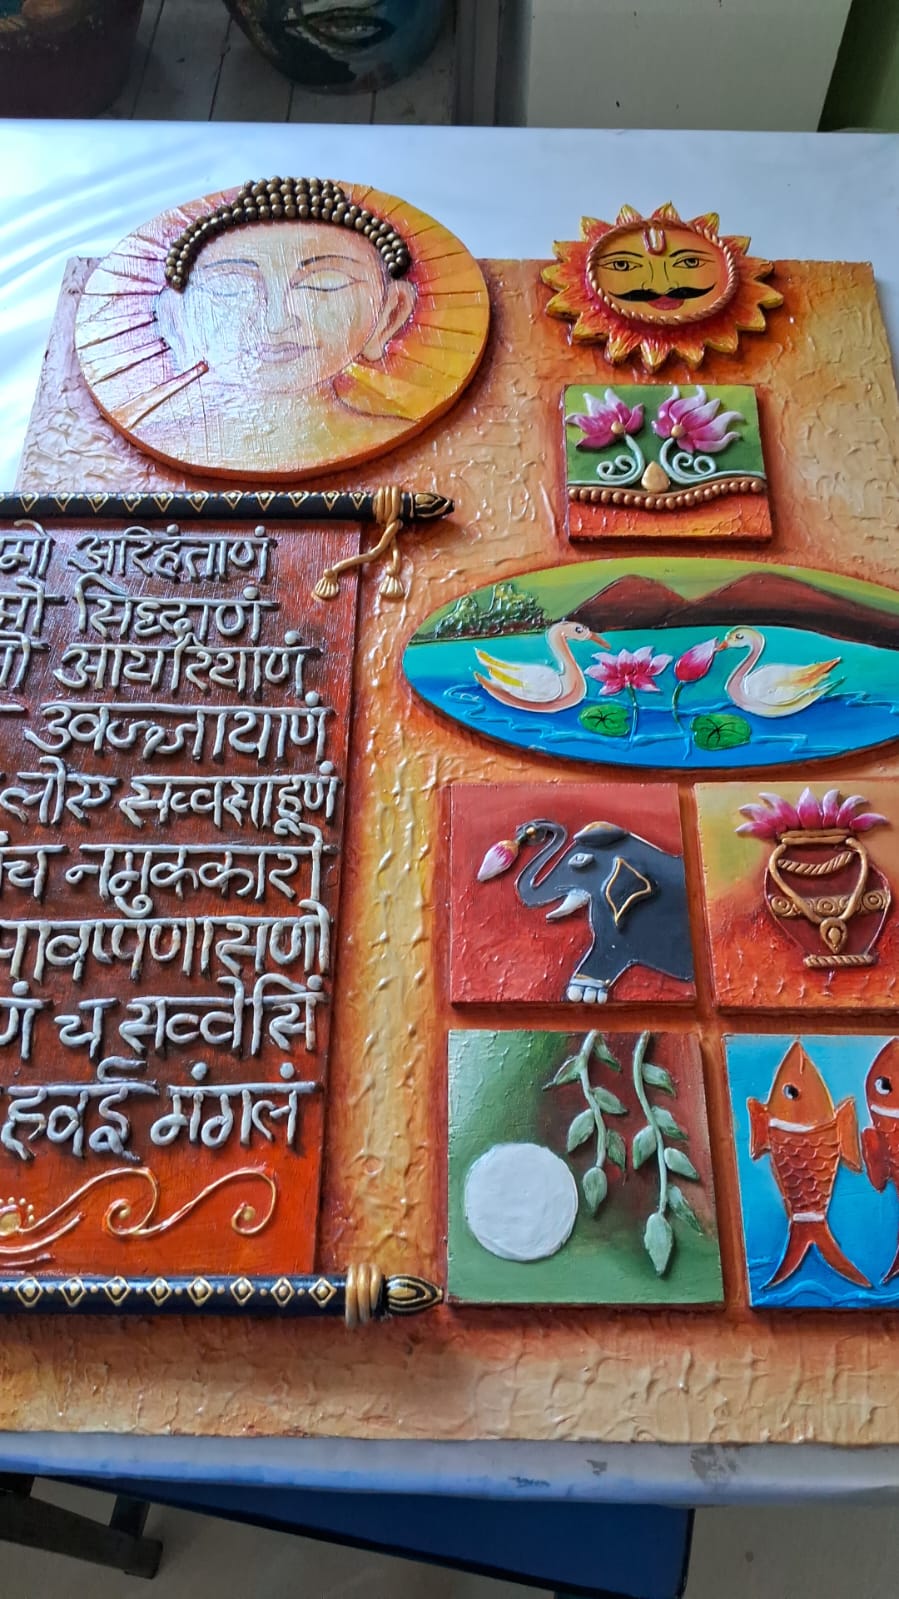 मो अरिहंताणं
मो सिद्धाणं
आयरियाणं
उवज्जायाणं
लोए सव्वसाहूणं
च नमुककारो
पावप्पणासणो
णं च सव्वेसिं
हवई मंगलं